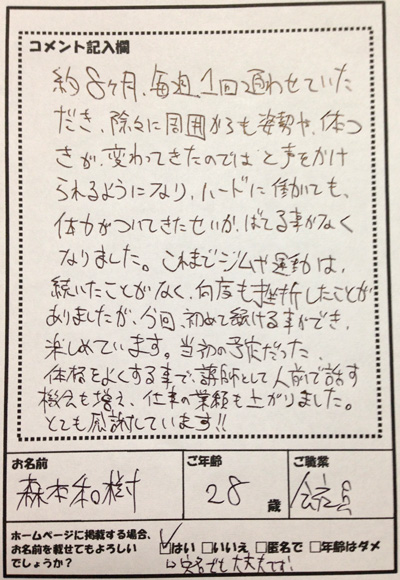 コメント記入欄
約8ヶ月、毎週1回通わせていた
だき、除々に周囲からも姿勢や、体つ
きが、変わってきたのではと声をかけ
られるようになり、ハードに働いても、
体力がついてきたせいか、ばてる事がなく
なりました。これまでジムや運動は、
続いたことがなく、何度も挫折したことが
ありましたが、今回、初めて続ける事ができ、
楽しめています。当初の予定だった、
体格をよくする事で、講師として人前で話す
機会も増え、仕事の業績も上がりました。
とても感謝しています!!
お名前 ご年齢 ご職業
森本和樹 28歳 会社員
ホームページに掲載する場合、
お名前を載せてもよろしい
でしょうか?
☑はい □いいえ □匿名で □年齢はダメ
実名でも大丈夫です